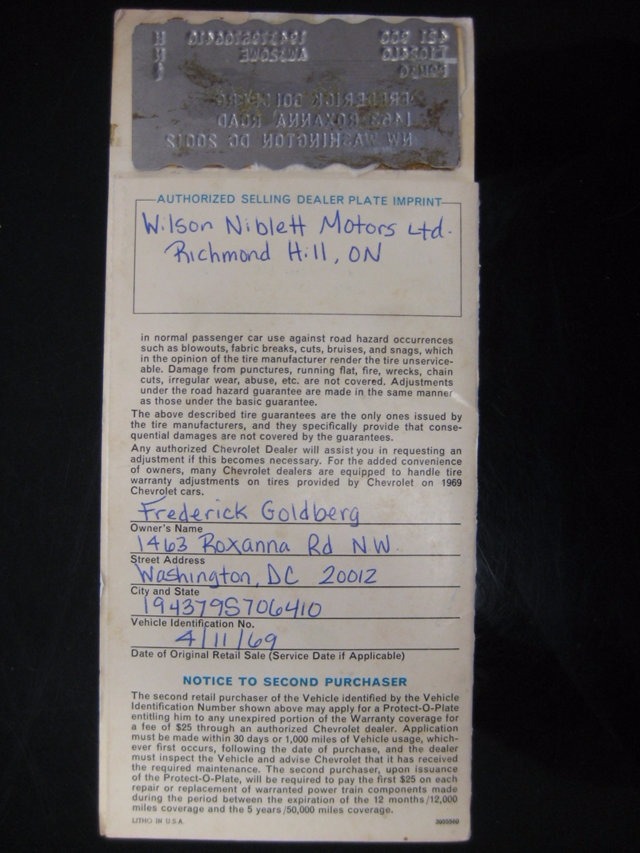 FREDERICK GOLDBERG
1463 ROXANNA ROAD
NW WASHINGTON DC 20012
AUTHORIZED SELLING DEALER PLATE IMPRINT
Wilson Niblett Motors Ltd.
Richmond Hill, ON
in normal passenger car use against road hazard occurrences
such as blowouts, fabric breaks, cuts, bruises, and snags, which
in the opinion of the tire manufacturer render the tire unservice-
able. Damage from punctures, running flat, fire, wrecks, chain
cuts, irregular wear, abuse, etc. are not covered. Adjustments
under the road hazard guarantee are made in the same manner
as those under the basic guarantee.
The above described tire guarantees are the only ones issued by
the tire manufacturers, and they specifically provide that conse-
quential damages are not covered by the guarantees.
Any authorized Chevrolet Dealer will assist you in requesting an
adjustment if this becomes necessary. For the added convenience
of owners, many Chevrolet dealers are equipped to handle tire
warranty adjustments on tires provided by Chevrolet on 1969
Chevrolet cars.
Frederick Goldberg
Owner's Name
1463 Roxanna Rd NW.
Street Address
Washington, DC 20012
City and State
194379S706410
Vehicle Identification No.
4/11/69
Date of Original Retail Sale (Service Date if Applicable)
NOTICE TO SECOND PURCHASER
The second retail purchaser of the Vehicle identified by the Vehicle
Identification Number shown above may apply for a Protect-O-Plate
entitling him to any unexpired portion of the Warranty coverage for
a fee of $25 through an authorized Chevrolet dealer. Application
must be made within 30 days or 1,000 miles of Vehicle usage, which-
ever first occurs, following the date of purchase, and the dealer
must inspect the Vehicle and advise Chevrolet that it has received
the required maintenance. The second purchaser, upon issuance
of the Protect-O-Plate, will be required to pay the first $25 on each
repair or replacement of warranted power train components made
during the period between the expiration of the 12 months/12,000
miles coverage and the 5 years/50,000 miles coverage.
LITHO IN U.S.A.